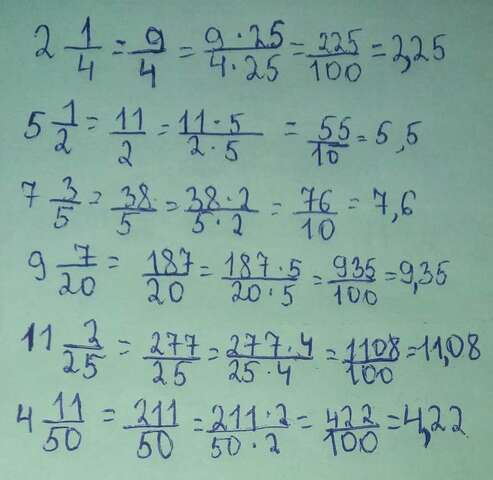 2 1/4 = 9/4 = 9·25/4·25 = 225/100 = 2,25
5 1/2 = 11/2 = 11·5/2·5 = 55/10 = 5,5
7 3/5 = 38/5 = 38·2/5·2 = 76/10 = 7,6
9 7/20 = 187/20 = 187·5/20·5 = 935/100 = 9,35
11 2/25 = 277/25 = 277·4/25·4 = 1108/100 = 11,08
4 11/50 = 211/50 = 211·2/50·2 = 422/100 = 4,22